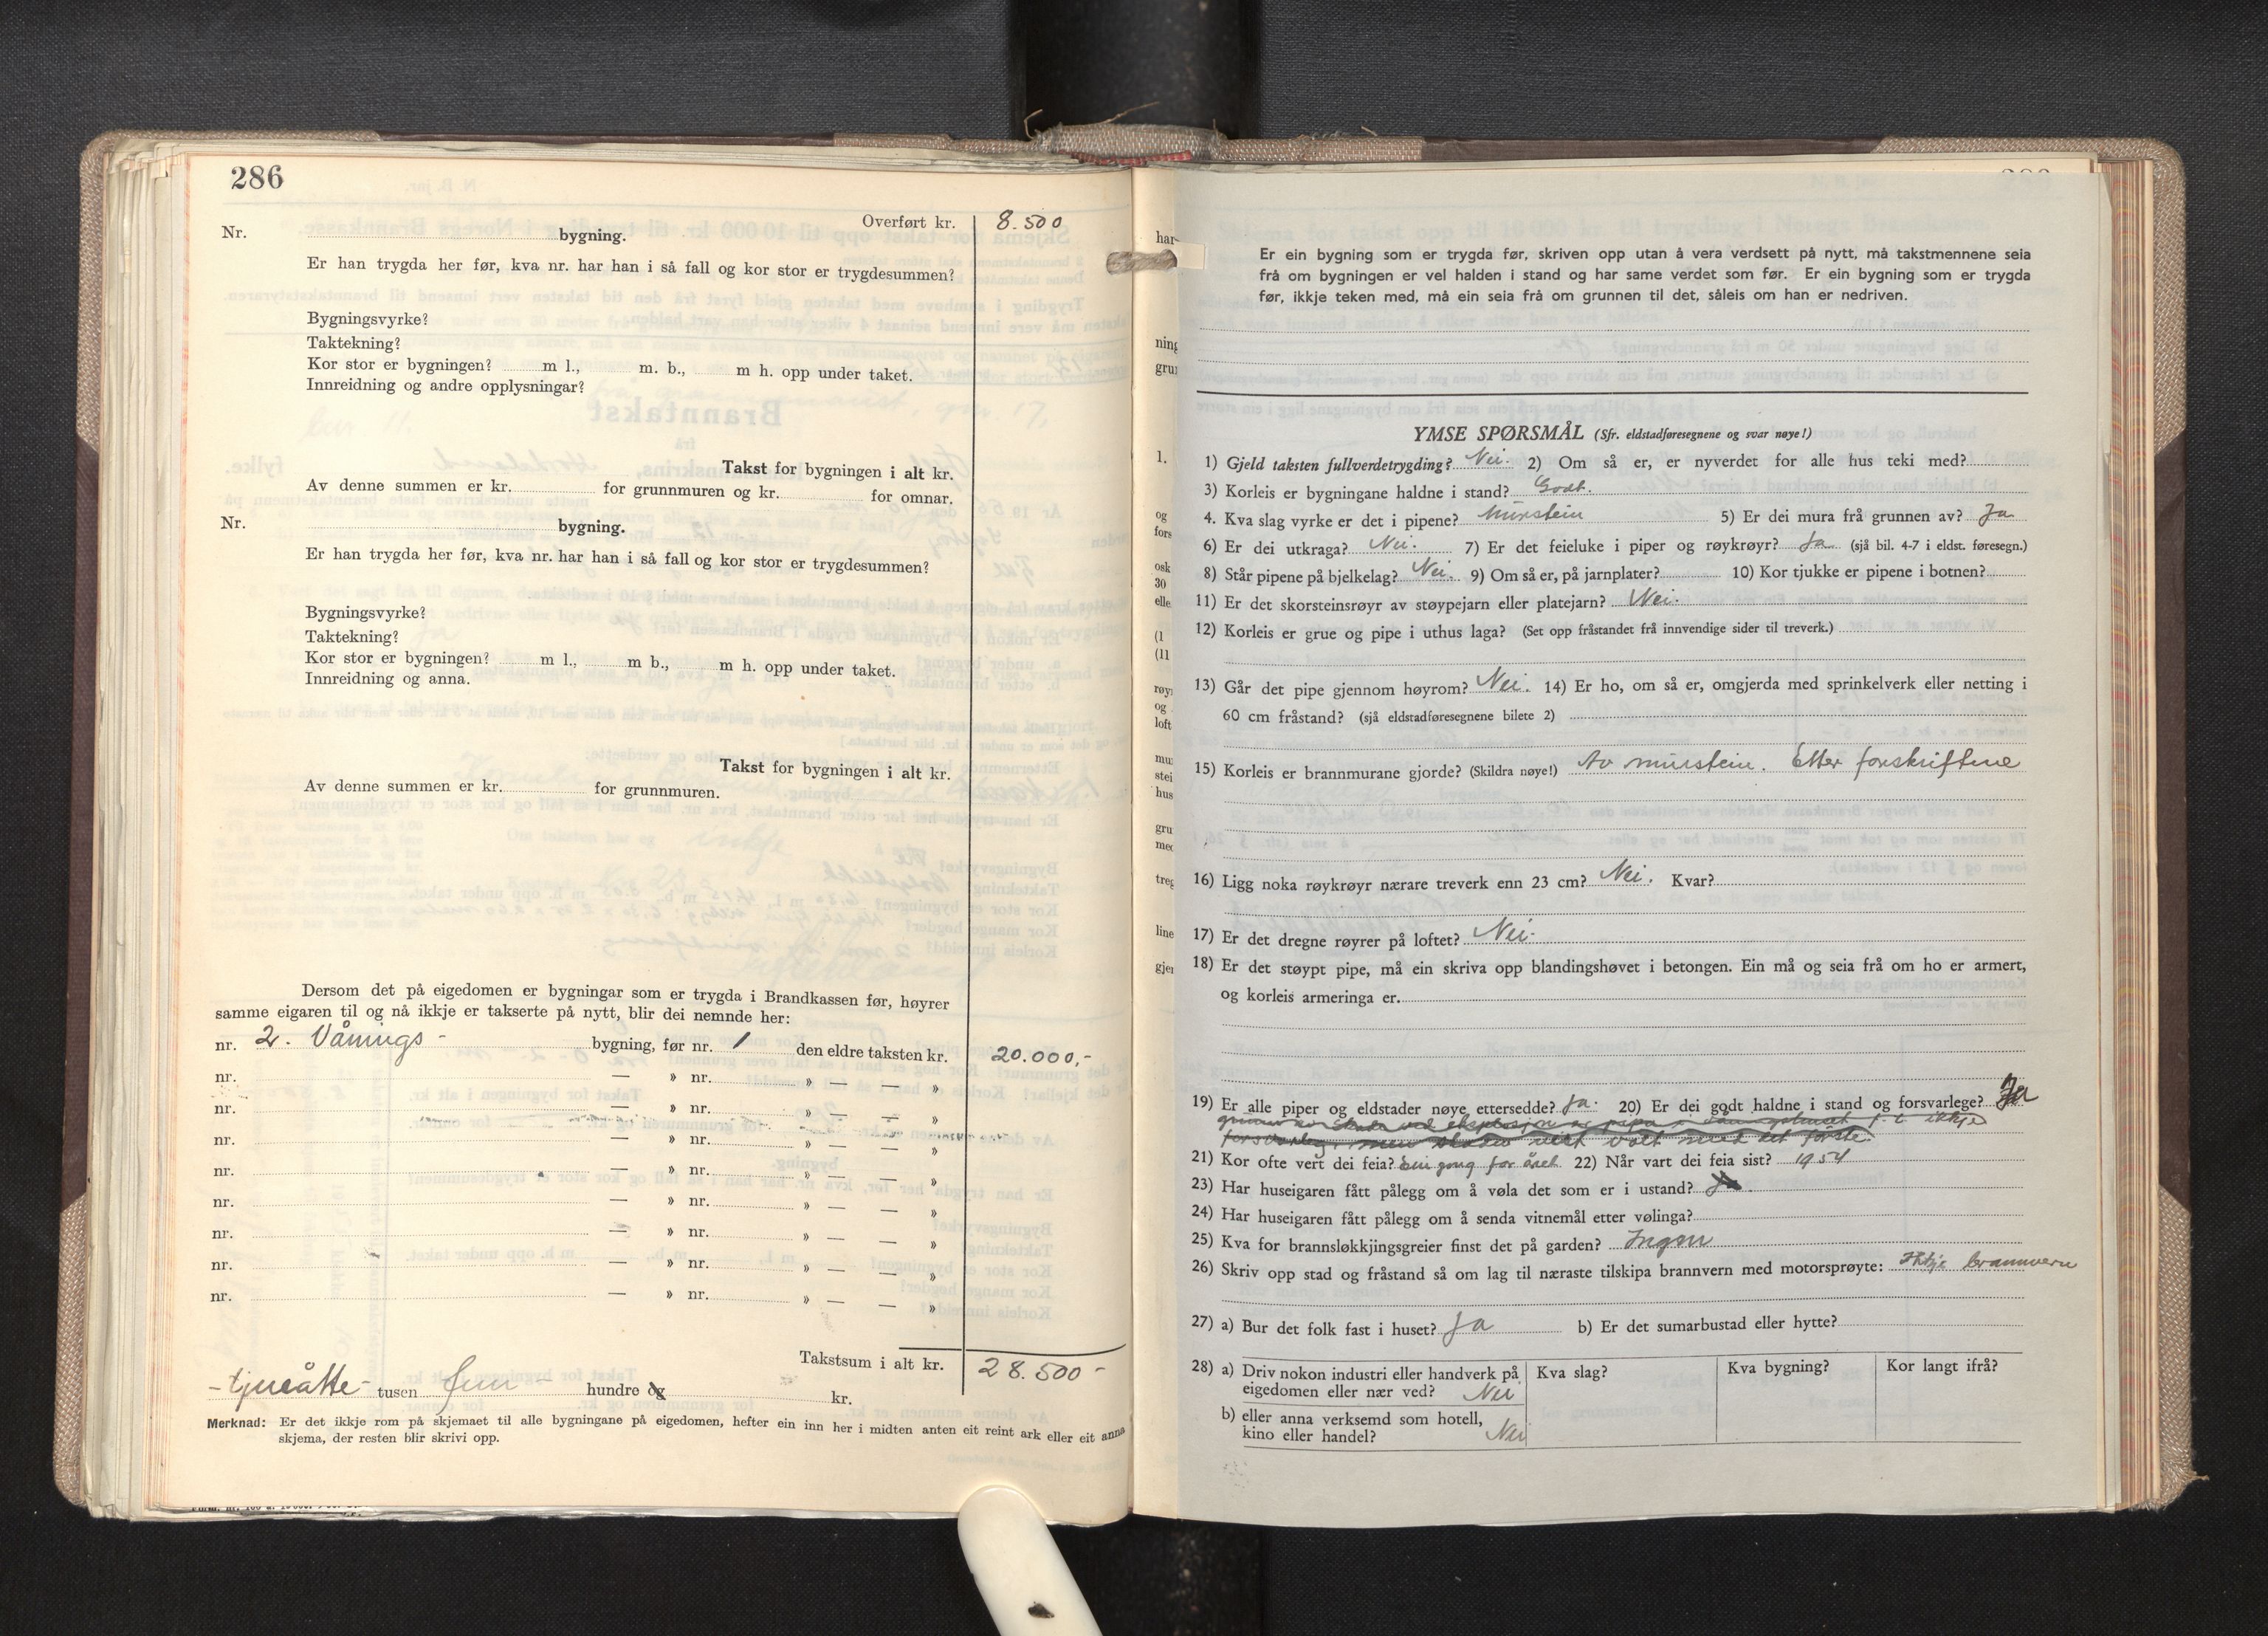 286
Overført kr. 8.500
Nr. bygning.
Er han trygda her før, kva nr. har han i så fall og kor stor er trygdesummen?
Bygningsvyrke?
Taktekning?
Kor stor er bygningen? m l., m. b., m h. opp under taket.
Innreidning og andre opplysningar?
Takst for bygningen i alt kr.
Av denne summen er kr. for grunnmuren og kr. for omnar.
Nr. bygning.
Er han trygda her før, kva nr. har han i så fall og kor stor er trygdesummen?
Bygningsvyrke?
Taktekning?
Kor stor er bygningen? m l., m b., m h. opp under taket.
Innreidning og anna.
Takst for bygningen i alt kr.
Av denne summen er kr. for grunnmuren.
Dersom det på eigedomen er bygningar som er trygda i Brandkassen før, høyrer
samme eigaren til og nå ikkje er takserte på nytt, blir dei nemnde her:
nr. 2. Vånings - bygning, før nr. 1 den eldre taksten kr. 20.000,-
nr. — » nr. » — — »
nr. — » nr. » — — »
nr. — » nr. » — — »
nr. — » nr. » — — »
nr. — » nr. » — — »
nr. — » nr. » — — »
nr. — » nr. » — — »
nr. — » nr. » — — »
Takstsum i alt kr. 28.500 -
- tjueåtte - tusen fem - hundre og kr.
Merknad: Er det ikkje rom på skjemaet til alle bygningane på eigedomen, hefter ein inn her i midten anten eit reint ark eller eit anna
skjema, der resten blir skrivi opp.
Er ein bygning som er trygda før, skriven opp utan å vera verdsett på nytt, må takstmennene seia
frå om bygningen er vel halden i stand og har same verdet som før. Er ein bygning som er trygda
før, ikkje teken med, må ein seia frå om grunnen til det, såleis om han er nedriven.
YMSE SPØRSMÅL (Sfr. eldstadføresegnene og svar nøye!)
1) Gjeld taksten fullverdetrygding? Nei. 2) Om så er, er nyverdet for alle hus teki med?
3) Korleis er bygningane haldne i stand? Godt.
4. Kva slag vyrke er det i pipene? Murstein 5) Er dei mura frå grunnen av? Ja
6) Er dei utkraga? Nei. 7) Er det feieluke i piper og røykrøyr? Ja (sjå bil. 4-7 i eldst. føresegn.)
8) Står pipene på bjelkelag? Nei. 9) Om så er, på jarnplater? 10) Kor tjukke er pipene i botnen?
11) Er det skorsteinsrøyr av støypejarn eller platejarn? Nei.
12) Korleis er grue og pipe i uthus laga? (Set opp fråstandet frå innvendige sider til treverk.)
13) Går det pipe gjennom høyrom? Nei. 14) Er ho, om så er, omgjerda med sprinkelverk eller netting i
60 cm fråstand? (sjå eldstadføresegnene bilete 2)
15) Korleis er brannmurane gjorde? (Skildra nøye!) Av murstein. Etter forskriftene
16) Ligg noka røykrøyr nærare treverk enn 23 cm? Nei. Kvar?
17) Er det dregne røyrer på loftet? Nei.
18) Er det støypt pipe, må ein skriva opp blandingshøvet i betongen. Ein må og seia frå om ho er armert,
og korleis armeringa er.
19) Er alle piper og eldstader nøye ettersedde? Ja. 20) Er dei godt haldne i stand og forsvarlege? Ja
21) Kor ofte vert dei feia? Ein gong for året 22) Når vart dei feia sist? 1954
23) Har huseigaren fått pålegg om å vøla det som er i ustand?
24) Har huseigaren fått pålegg om å senda vitnemål etter vølinga?
25) Kva for brannsløkkjingsgreier finst det på garden? Ingen
26) Skriv opp stad og fråstand så om lag til næraste tilskipa brannvern med motorsprøyte: Ikkje brannvern
27) a) Bur det folk fast i huset? Ja b) Er det sumarbustad eller hytte?
28) a) Driv nokon industri eller handverk på eigedomen eller nær ved? Nei Kva slag? Kva bygning? Kor langt ifrå?
b) eller anna verksemd som hotell, kino eller handel? Nei